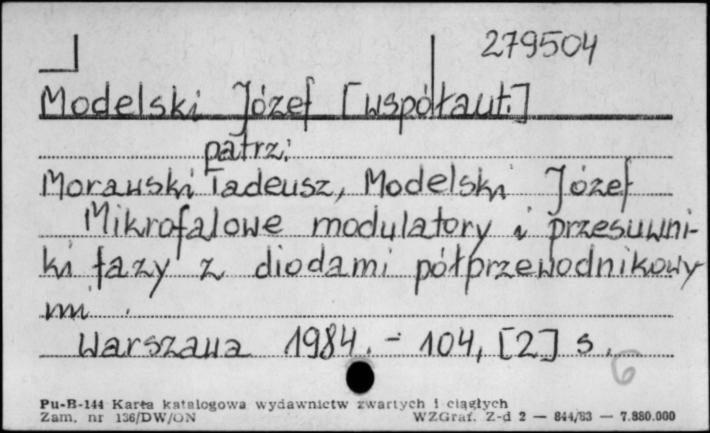 279504
Modelski Józef [współaut.]
patrz:
Morawski Tadeusz, Modelski Józef
Mikrofalowe modulatory i przesuwni-
ki fazy z diodami półprzewodnikowy-
mi.
Warszawa 1984. - 104, [2] s.
6
Pu-B-144 Karta katalogowa wydawnictw zwartych i ciągłych
Zam. nr 136/DW/ON WZGraf. Z-d 2 — 844/83 — 7.880.000